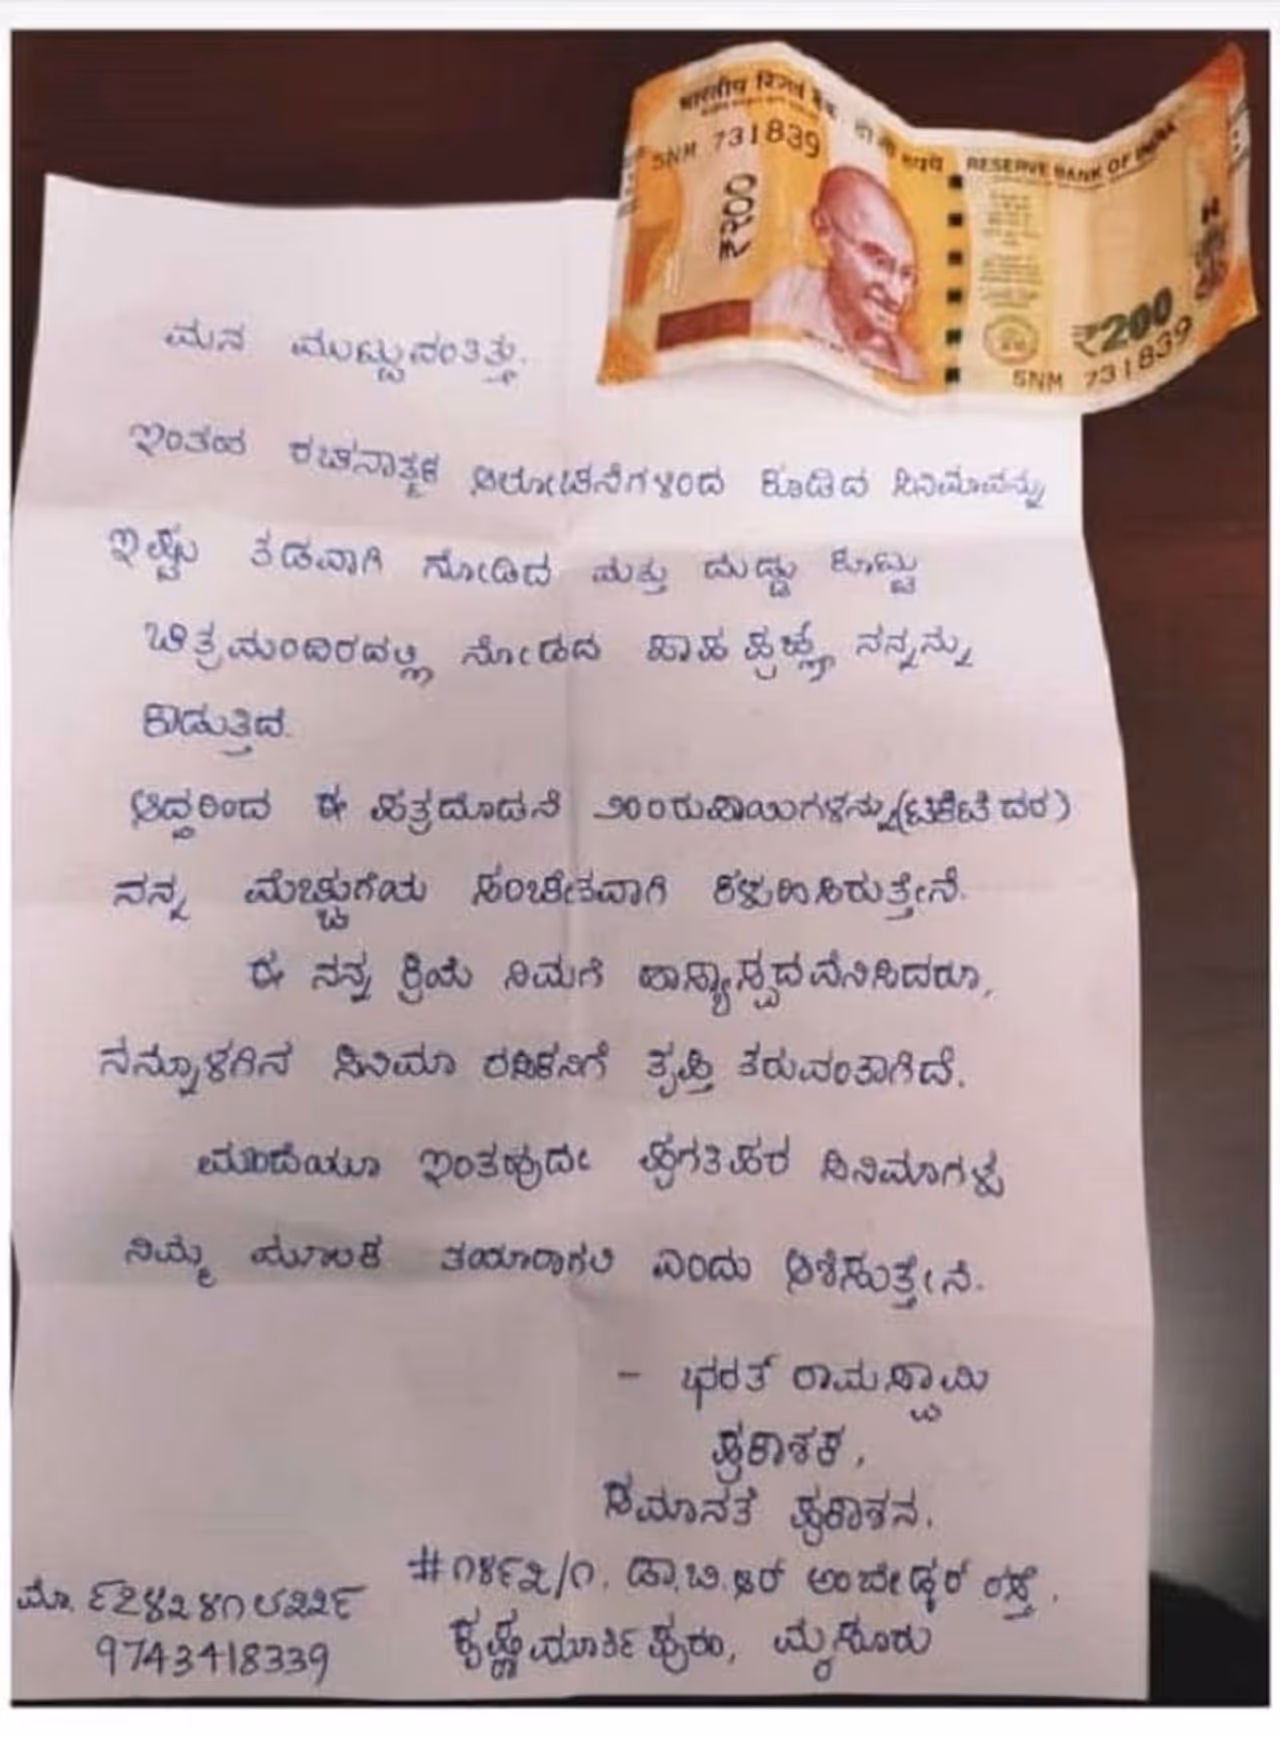 भारतीय रिज़र्व बैंक
5NM 731839
₹200
RESERVE BANK OF INDIA
₹200
5NM 731839
ಮನ ಮುಟ್ಟುವಂತಿತ್ತು.
ಇಂತಹ ರಚನಾತ್ಮಕ ಆಲೋಚನೆಗಳಿಂದ ಕೂಡಿದ ಸಿನಿಮಾವನ್ನು
ಇಷ್ಟು ತಡವಾಗಿ ನೋಡಿದ ಮತ್ತು ದುಡ್ಡು ಕೊಟ್ಟು
ಚಿತ್ರಮಂದಿರದಲ್ಲಿ ನೋಡದ ಪಾಪ ಪ್ರಜ್ಞೆ ನನ್ನನ್ನು
ಕಾಡುತ್ತಿದೆ.
ಆದ್ದರಿಂದ ಈ ಪತ್ರದೊಡನೆ ೨೦೦ರುಪಾಯಿಗಳನ್ನು(ಟಿಕೇಟಿ ದರ)
ನನ್ನ ಮೆಚ್ಚುಗೆಯ ಸಂಕೇತವಾಗಿ ಕಳುಹಿಸಿರುತ್ತೇನೆ.
ಈ ನನ್ನ ಕ್ರಿಯೆ ನಿಮಗೆ ಹಾಸ್ಯಾಸ್ಪದವೆನಿಸಿದರೂ,
ನನ್ನೊಳಗಿನ ಸಿನಿಮಾ ರಸಿಕನಿಗೆ ತೃಪ್ತಿ ತರುವಂತಾಗಿದೆ.
ಮುಂದೆಯೂ ಇಂತಹುದೇ ಪ್ರಗತಿಪರ ಸಿನಿಮಾಗಳು
ನಿಮ್ಮ ಮೂಲಕ ತಯಾರಾಗಲಿ ಎಂದು ಆಶಿಸುತ್ತೇನೆ.
- ಭರತ್ ರಾಮಸ್ವಾಮಿ
ಪ್ರಕಾಶಕ,
ಸಮಾನತೆ ಪ್ರಕಾಶನ.
#೧೪೯೩/೧, ಡಾ.ಬಿ.ಆರ್ ಅಂಬೇಡ್ಕರ್ ರಸ್ತೆ,
ಕೃಷ್ಣಮೂರ್ತಿಪುರಂ, ಮೈಸೂರು
ಮೊ.
9743418339